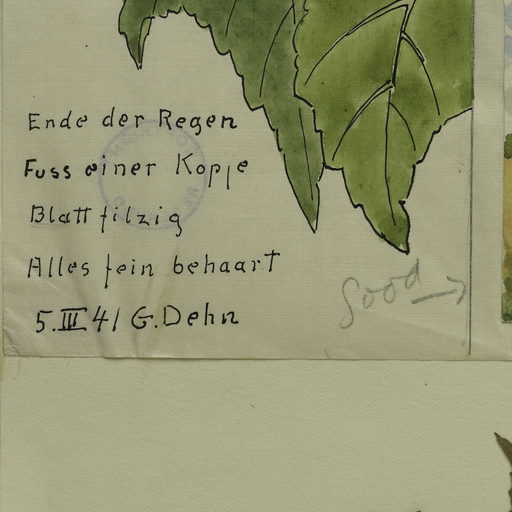 Ende der Regen
Fuss einer Kopje
Blatt filzig
Alles fein behaart
5.III 41 G.Dehn
Good →